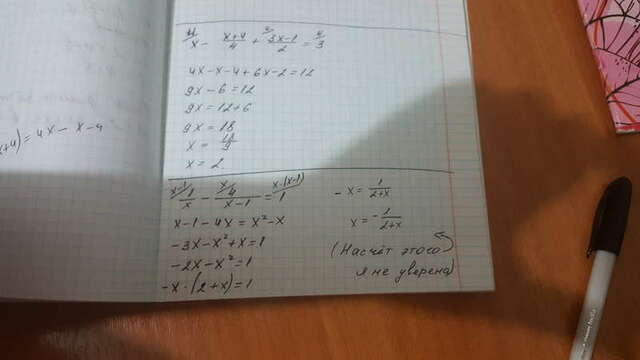 +4) = 4x - x - 4
x - (x+4)/4 + (3x-1)/2 = 3
4x - x - 4 + 6x - 2 = 12
9x - 6 = 12
9x = 12 + 6
9x = 18
x = 18/9
x = 2
(x-1)/x - 4/(x-1) = 1
x - 1 - 4x = x² - x
-3x - x² + x = 1
-2x - x² = 1
-x · (2 + x) = 1
- x = 1/(2+x)
x = - 1/(2+x)
(Насчёт этого
я не уверена)